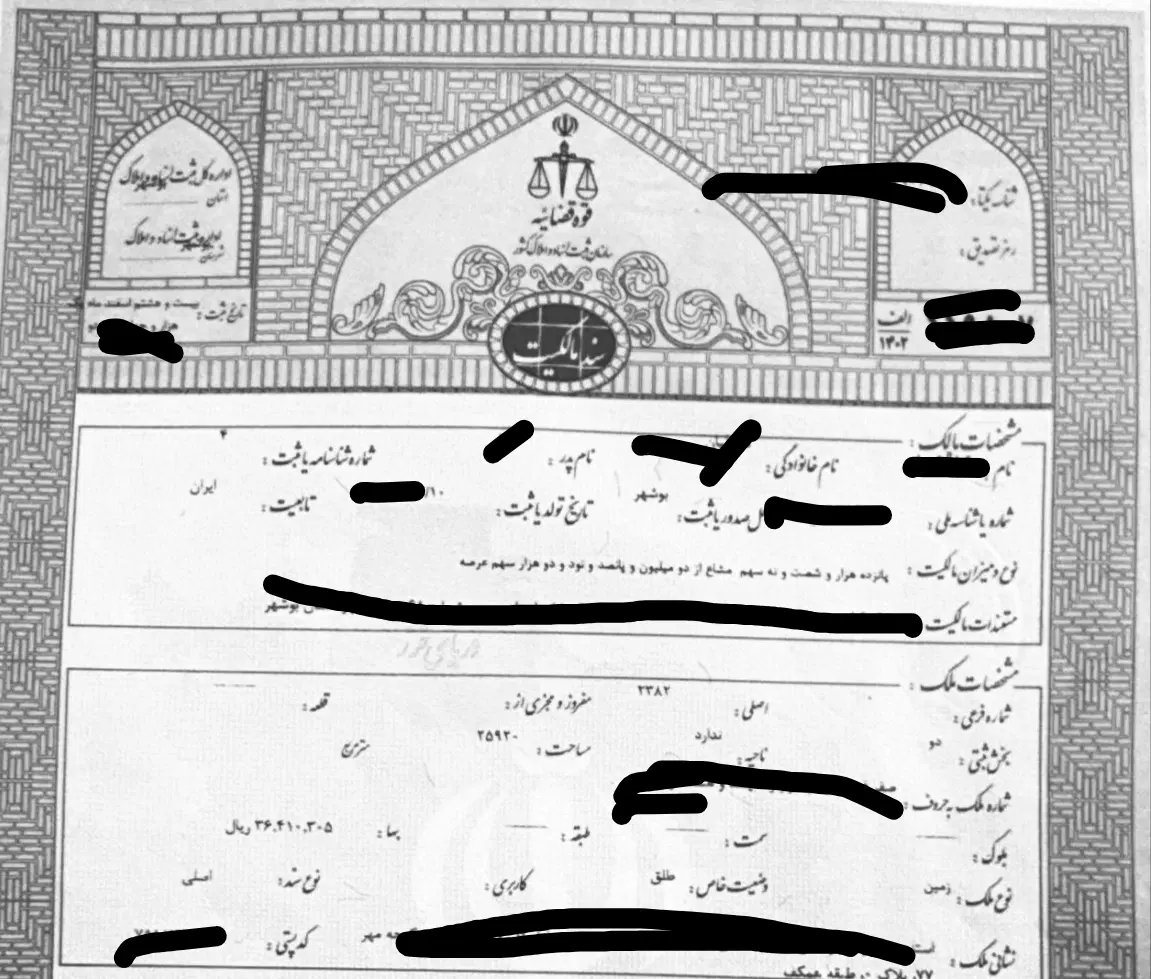 قوه قضائیه
سازمان ثبت اسناد و املاک کشور
سند مالکیت
اداره کل ثبت اسناد و املاک
استان
اداره ثبت اسناد و املاک
شهرستان
تاریخ ثبت : بیست و هشتم اسفند ماه یک
هزار و
شناسه یکتا :
رمز تصدیق :
الف
۱۴۰۲
مشخصات مالک :
نام : نام خانوادگی : نام پدر : شماره شناسنامه یا ثبت : ۴
شماره یا شناسه ملی : محل صدور یا ثبت : بوشهر تاریخ تولد یا ثبت : /۱۰ تابعیت : ایران
نوع و میزان مالکیت : پانزده هزار و شصت و نه سهم مشاع از دو میلیون و پانصد و نود و دو هزار سهم عرصه
مستندات مالکیت : بوشهر
مشخصات ملک :
شماره فرعی : اصلی : ۲۳۸۲ مفروز و مجزی از : قطعه :
بخش ثبتی : دو ناحیه : ندارد مساحت : ۲۵۹۲۰ مترمربع
شماره ملک به حروف :
بلوک : سمت : طبقه : بها : ۳۶,۴۱۰,۳۰۵ ریال
نوع ملک : زمین وضعیت خاص : طلق کاربری : نوع سند : اصلی
نشانی ملک : مهر کد پستی :
۷۷، پلاک ۰، طبقه همکف